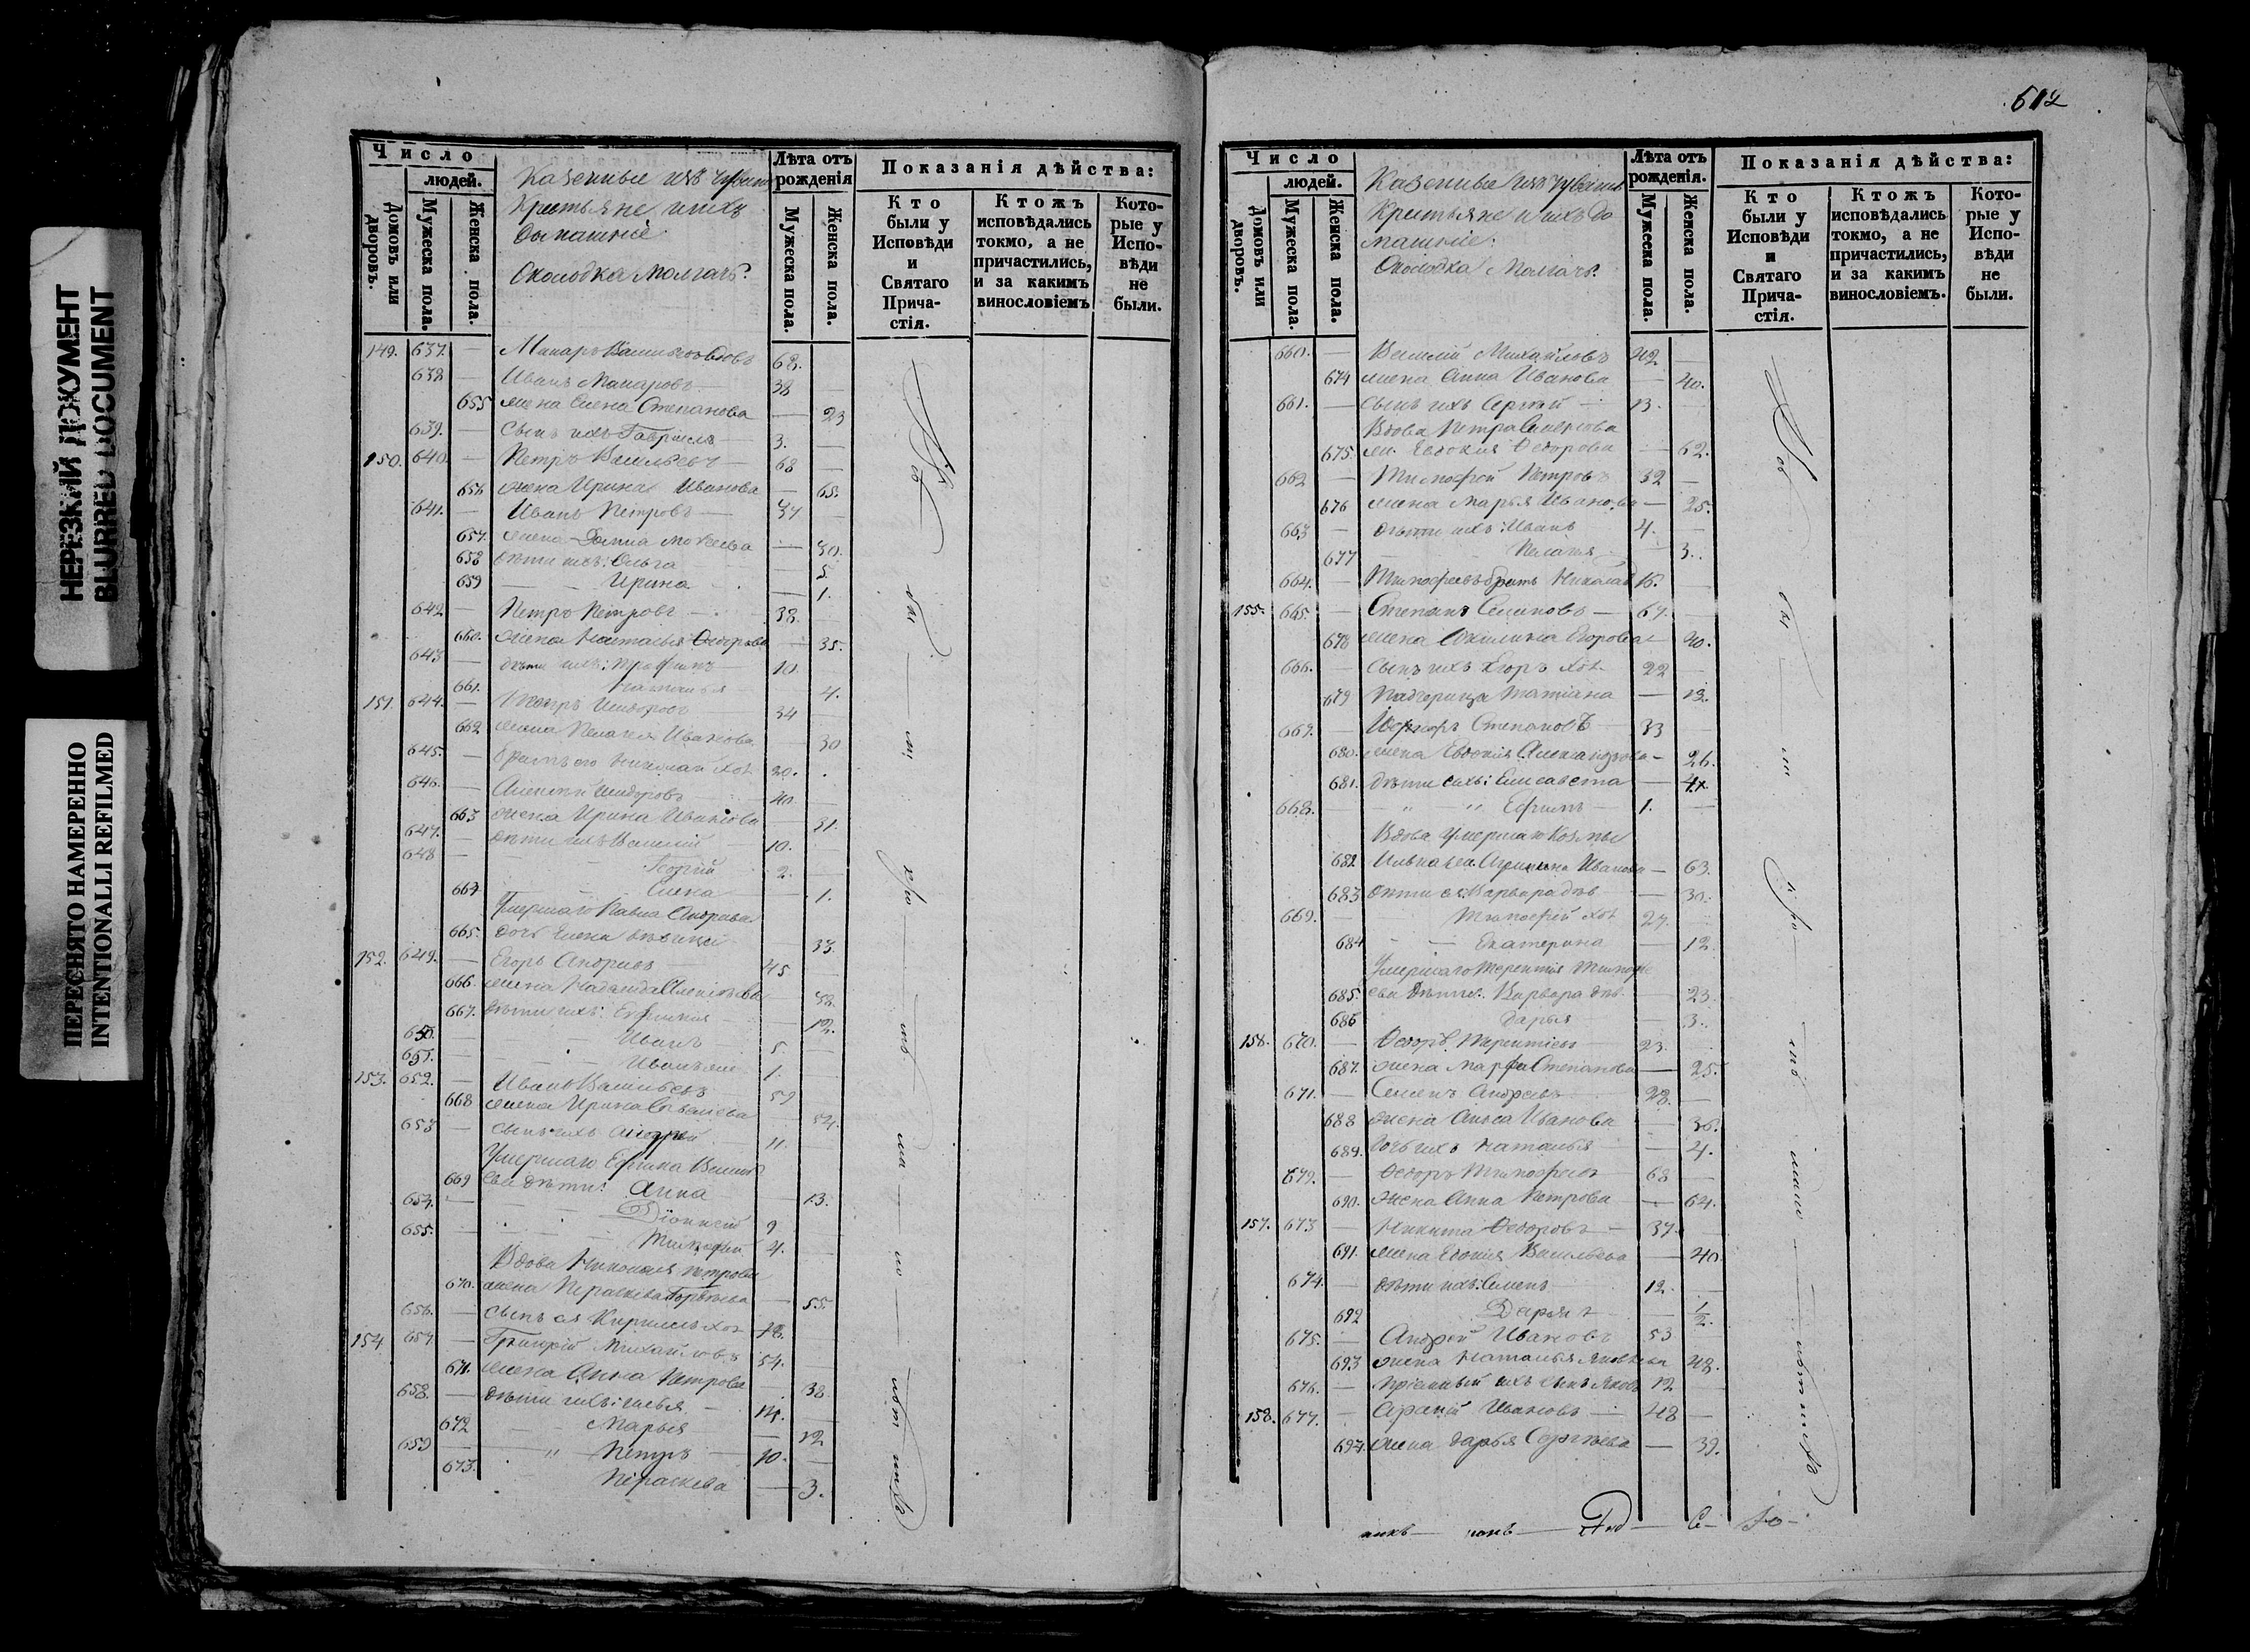 НЕРЕЗКИЙ ДОКУМЕНТ
BLURRED DOCUMENT
ПЕРЕСНЯТО НАМЕРЕННО
INTENTIONALLI REFILMED
Число
людей.
Домовъ или дворовъ.
Мужеска пола.
Женска пола.
Казенные изъ чуваш
Крестьяне и ихъ
домашніе.
Околодка Молгачъ.
Лѣта отъ рожденія
Мужеска пола.
Женска пола.
Показанія дѣйства:
Кто были у Исповѣди и Святаго Прича-стія.
Ктожъ исповѣдались токмо, а не причастились, и за какимъ винословіемъ
Кото-рые у Испо-вѣди не были.
149. 637. — Макаръ 68.
638 — Иванъ Макаровъ — 38
655 жена Елена Степанова — 23
639. — Сынъ ихъ Гавріилъ 3.
150. 640. — Петръ Васильевъ — 68
656 жена Ирина Иванова — 65.
641. — Иванъ Петровъ — 37
657. жена Домна Моисеева — 30.
658 дѣти ихъ: Ольга — 5.
659 — — Ирина — 1.
642 — Петръ Петровъ — 38.
660. жена Наталья Ѳедорова — 35.
643 — дѣти ихъ: Трофимъ 10.
661. Наталья — 4.
151. 644. — Петръ 34
662 жена Пелагея Иванова — 30
645. — братъ его Николай хол 20.
646. — Алексѣй 40.
663 жена Ирина Иванова — 31.
647. — дѣти ихъ Василій 10.
648 — Георгій 2.
664 — Елена — 1.
Умершаго Павла Андреева
665. дочь Елена дѣвица — 33.
152. 649. — Егоръ Андреевъ 45
666. жена Надежда Алексѣева — 38.
667. дѣти ихъ: Евфимія — 12.
650. — Иванъ 5
651. — Иванъ 1.
153. 652. — Иванъ Васильевъ 59
668 жена Ирина — 54.
653 — сынъ ихъ Андрей 11.
Умершаго Ефима Василь
669 ева дѣти: Анна — 13.
654. — Діонисій 9
655. — Тимофей 4.
Вдова Николая Петрова
670. жена Параскева — 55.
656. — сынъ ея Кириллъ хол 18.
154 657. — Григорій Михайловъ 54.
671. жена Анна Петрова — 38
658. — дѣти ихъ: Илья — 14.
672 — Марья — 12
659 — " Петръ 10.
673. Параскева — 3.
612
Число
людей.
Домовъ или дворовъ.
Мужеска пола.
Женска пола.
Казенные изъ чуваш
Крестьяне и ихъ до
машніе.
Околодка Молгачъ.
Лѣта отъ рожденія.
Мужеска пола.
Женска пола.
Показанія дѣйства:
Кто были у Исповѣди и Святаго Прича-стія.
Ктожъ исповѣдались токмо, а не причастились, и за какимъ винословіемъ.
Кото-рые у Испо-вѣди не были.
660. — Василій Михайловъ 42
674 жена Анна Иванова — 40.
661. — сынъ ихъ Сергѣй 13.
Вдова Петра Семенова
675. ж. Евдокія Ѳедорова — 62.
662 — Тимофей Петровъ 32
676 жена Марья Иванова — 25.
663 — дѣти ихъ: Иванъ 4.
677 Пелагія — 3.
664. — Тимофеевъ братъ Николай 16.
155. 665. — Степанъ Семеновъ — 67.
678 жена Акилина Егорова — 40.
666. — сынъ ихъ Егоръ хол 22
679 Падчерица Татіана — 13.
667. — Степановъ 33
680. жена Евдокія Александрова — 26.
681. дѣти ихъ: Елисавета — 4.
668. " " Ефимъ 1.
Вдова умершаго Козьмы
682 Агрипина Иванова — 63.
683 дѣти ея: Варвара дѣв — 30.
669. — Тимофей хол 27.
684 — — Екатерина — 12.
Умершаго Терентія Тимофе
685. ева дѣти: Варвара дѣв — 23.
686 Дарья — 3.
158. 670. — Ѳедоръ Терентіевъ 23.
687. жена Марфа Степанова — 25.
671. — Семенъ Андреевъ 28.
688 жена Анна Иванова — 36.
689. дочь ихъ Наталья — 4.
672. — Ѳедоръ Тимофеевъ 68
690. жена Анна Петрова — 64.
157. 673 — Никита Ѳедоровъ — 37.
691. жена Евдокія Васильева — 40
674. — дѣти ихъ: Семенъ 12.
692 Дарья — ½.
675. — Андрей Ивановъ 53
693 жена Наталья Яковлева 48.
676. — пріемный ихъ сынъ Яковъ 12
158. 677. — Сергѣй Ивановъ — 48
694. жена Дарья Сергѣева — 39.